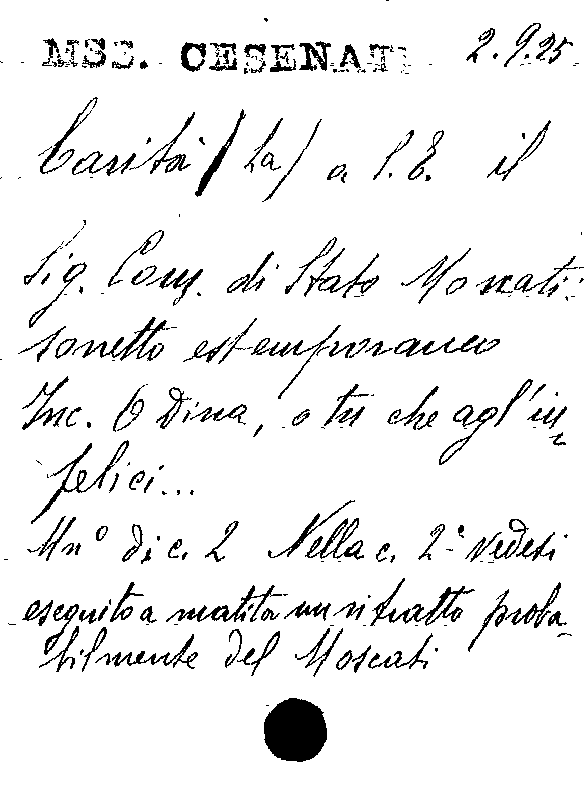 MSS. CESENATI 2.9.25
Carità (La) a S.E. il
Sig. Cons. di Stato Moscati:
sonetto estemporaneo
Inc. O Diva, o tu che agl'in-
felici...
Mn° di c. 2 Nella c. 2ª vedesi
eseguito a matita un ritratto proba-
bilmente del Moscati